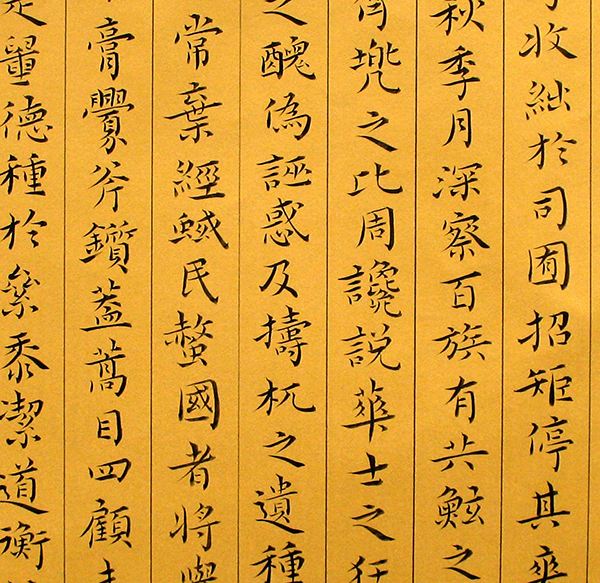 收絀於司囿招矩停其
秋季月深察百族有共鮌之
兜之比周讒説華士之狂
之醜偽誣惑及擣杌之遺種
常棄經蜮民螯國者將
膏釁斧鑽蓋蒿目四顧
量德種於黍潔道衡